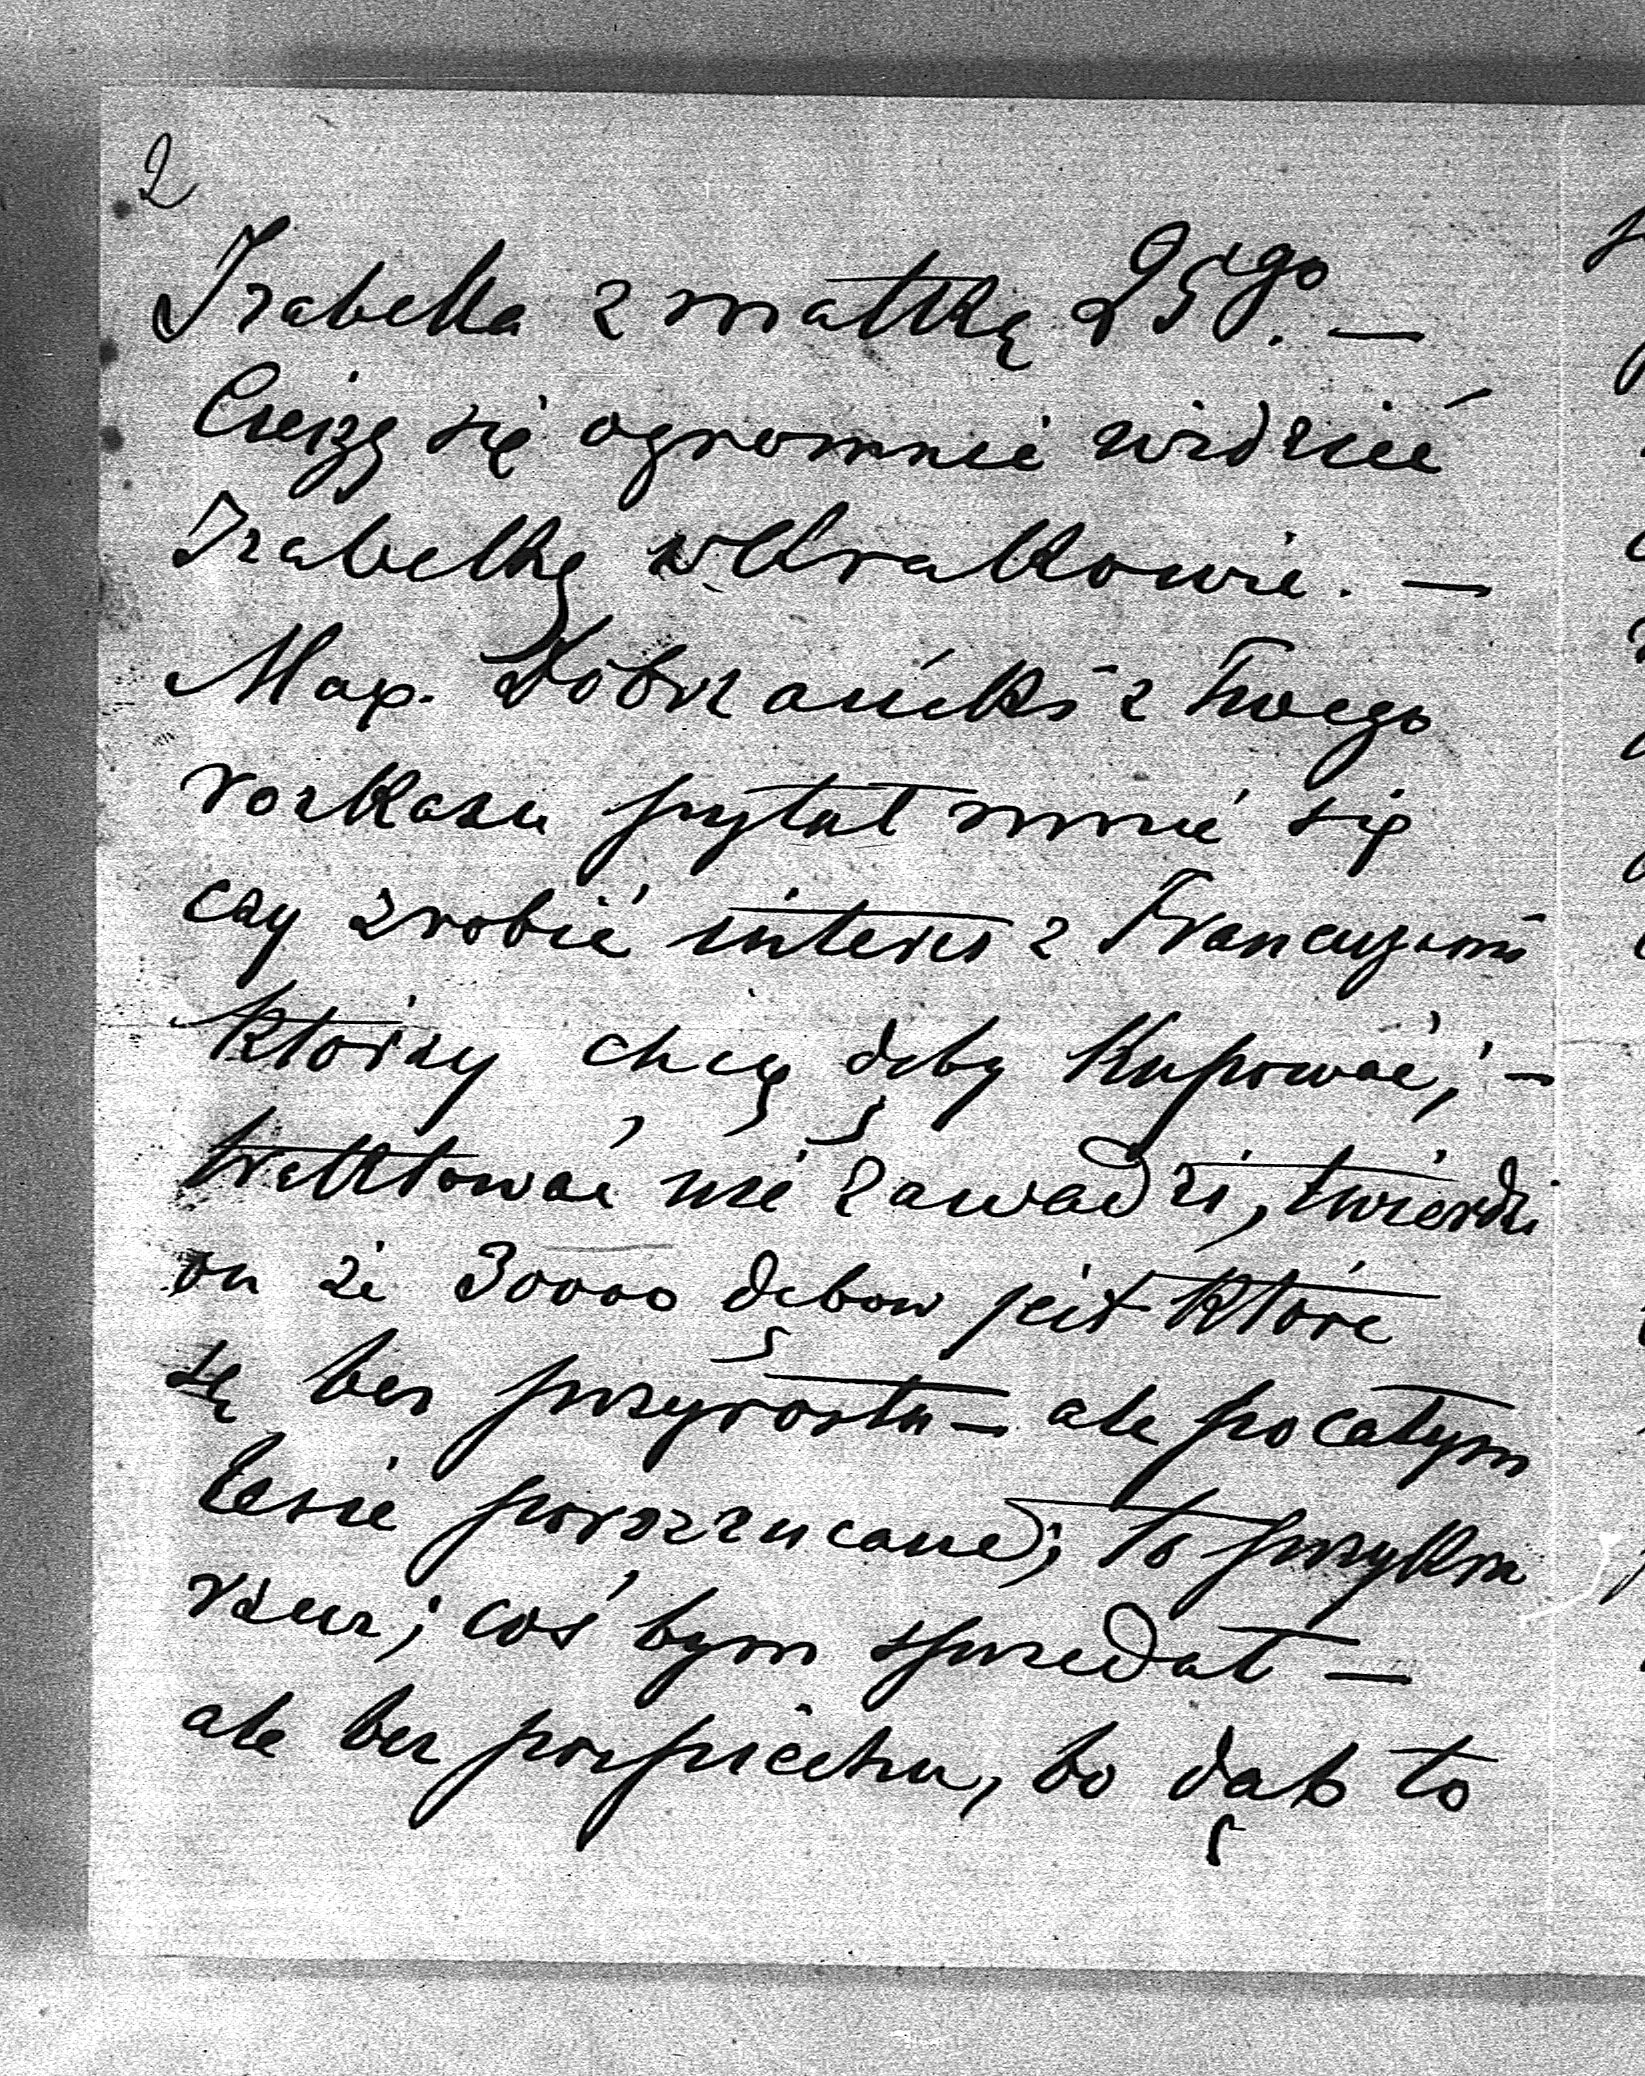 2
Izabella z matką 25go. —
Cieszę się ogromnie widzieć
Izabellkę w Krakowie. —
Max. Dobrzański z Twego
rozkazu pytał mnie się
czy zrobić interes z Francuzami
którzy chcą dęby kupować, —
traktować nie zawadzi, twierdzi
on że 30000 dębow jest które
są bez przyrostu — ale po całym
lesie porozrzucane; to przykra
rzecz; coś bym sprzedał —
ale bez pospiechu, bo dąb to